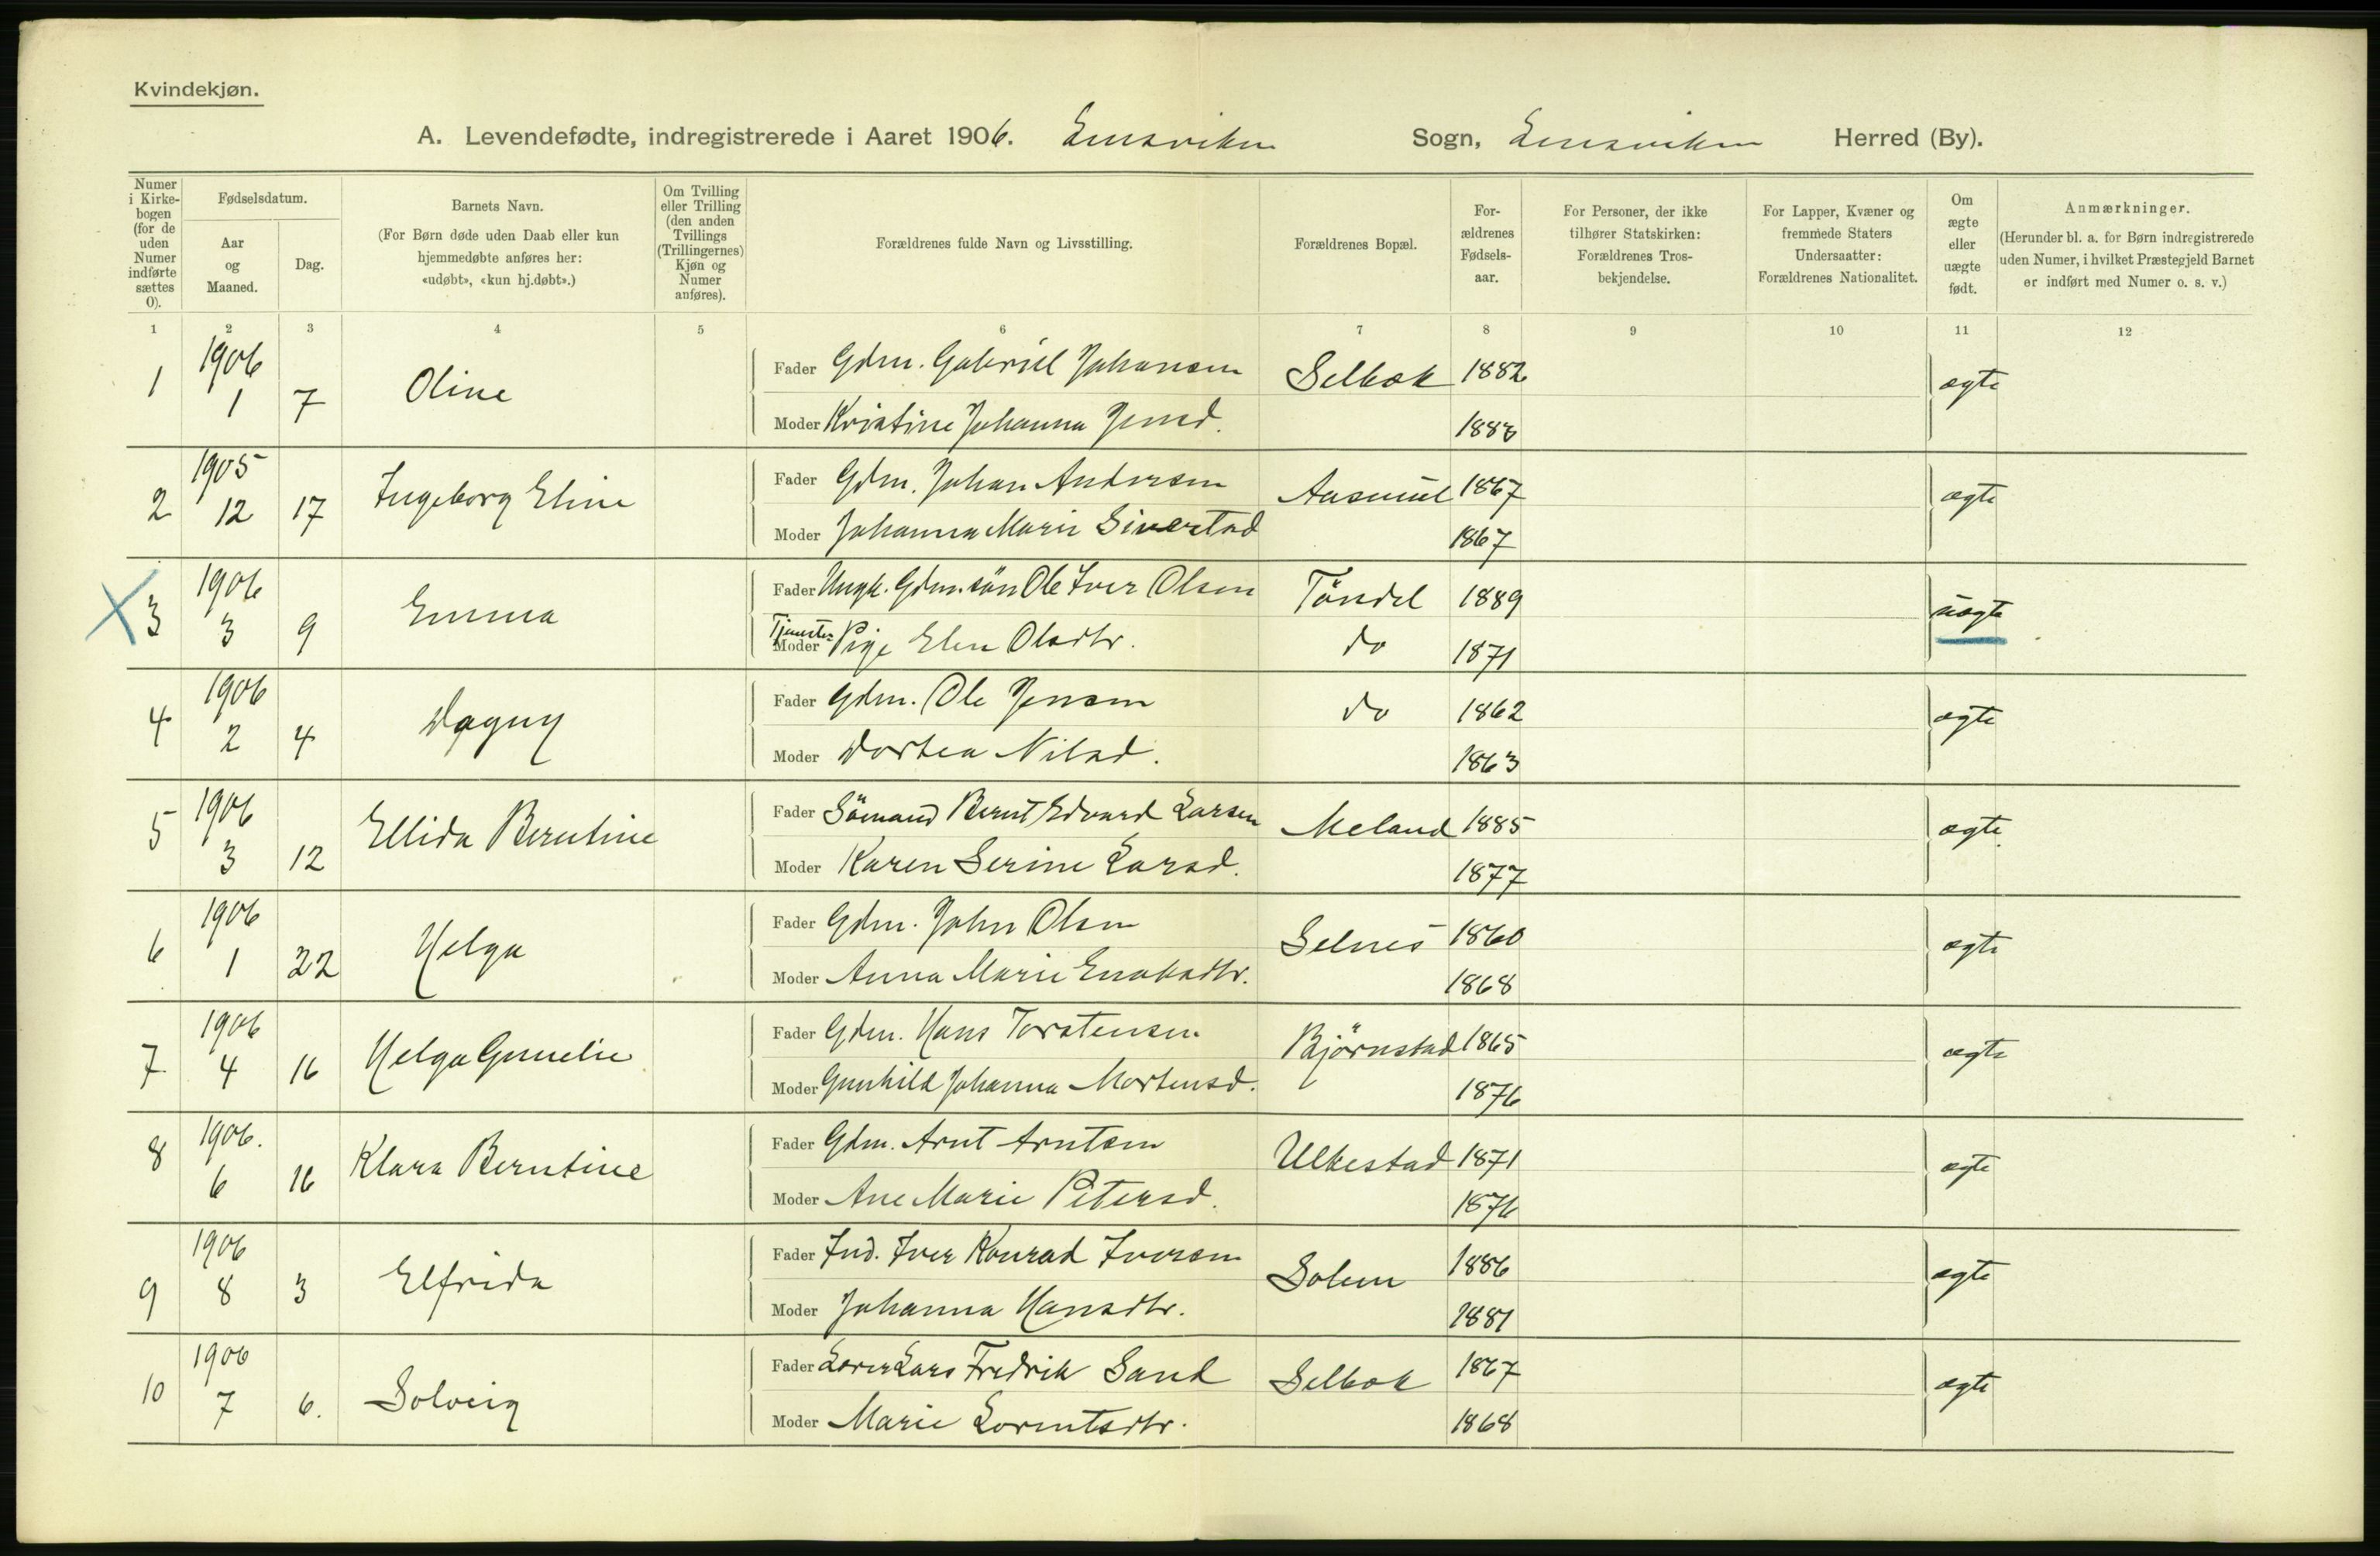 Kvindekjøn.
A. Levendefødte, indregistrerede i Aaret 1906. Lensviken Sogn, Lensviken Herred (By).
Numer i Kirkebogen (for de uden Numer indførte sættes 0).
Fødselsdatum.
Aar og Maaned.
Dag.
Barnets Navn.
(For Børn døde uden Daab eller kun hjemmedøbte anføres her: «udøbt», «kun hj.døbt».)
Om Tvilling eller Trilling (den anden Tvillings (Trillingernes) Kjøn og Numer anføres).
Forældrenes fulde Navn og Livsstilling.
Forældrenes Bopæl.
Forældrenes Fødselsaar.
For Personer, der ikke tilhører Statskirken: Forældrenes Trosbekjendelse.
For Lapper, Kvæner og fremmede Staters Undersaatter: Forældrenes Nationalitet.
Om ægte eller uægte født.
Anmærkninger.
(Herunder bl. a. for Børn indregistrerede uden Numer, i hvilket Præstegjeld Barnet er indført med Numer o. s. v.)
1 2 3 4 5 6 7 8 9 10 11 12
1 1906 1 7 Oline Fader Gdm. Gabriel Johansen Selbæk 1882 ægte
Moder Kristine Johanna Jensd. 1888
2 1905 12 17 Ingeborg Eline Fader Gdm. Johan Andersen Aasmul 1867 ægte
Moder Johanna Marie Sivertsd 1867
3 1906 3 9 Emma Fader Ungk. Gdm.søn Ole Iver Olsen Töndel 1889 uægte
Tjeneste- Moder Pige Elen Olsdtr. do 1871
4 1906 2 4 Dagny Fader Gdm. Ole Jensen do 1862 ægte
Moder Dortea Nilsd. 1863
5 1906 3 12 Ellida Berntine Fader Sömand Bernt Edvard Larsen Meland 1885 ægte
Moder Karen Serine Larsd. 1877
6 1906 1 22 Helga Fader Gdm. John Olsen Selnes 1860 ægte
Moder Anna Marie Enoksdtr. 1868
7 1906 4 16 Helga Gunelie Fader Gdm. Hans Torstensen Björnstad 1865 ægte
Moder Gunhild Johanna Mortensd. 1876
8 1906. 6 16 Klara Berntine Fader Gdm. Arnt Arntsen Ulkestad 1871 ægte
Moder Ane Marie Petersd. 1876
9 1906 8 3 Elfrida Fader Ind. Iver Konrad Iversen Solem 1886 ægte
Moder Johanna Hansdtr. 1881
10 1906 7 6. Solveig Fader Lærer Lars Fredrik Sand Selbæk 1867 ægte
Moder Marie Lorentsdtr. 1868